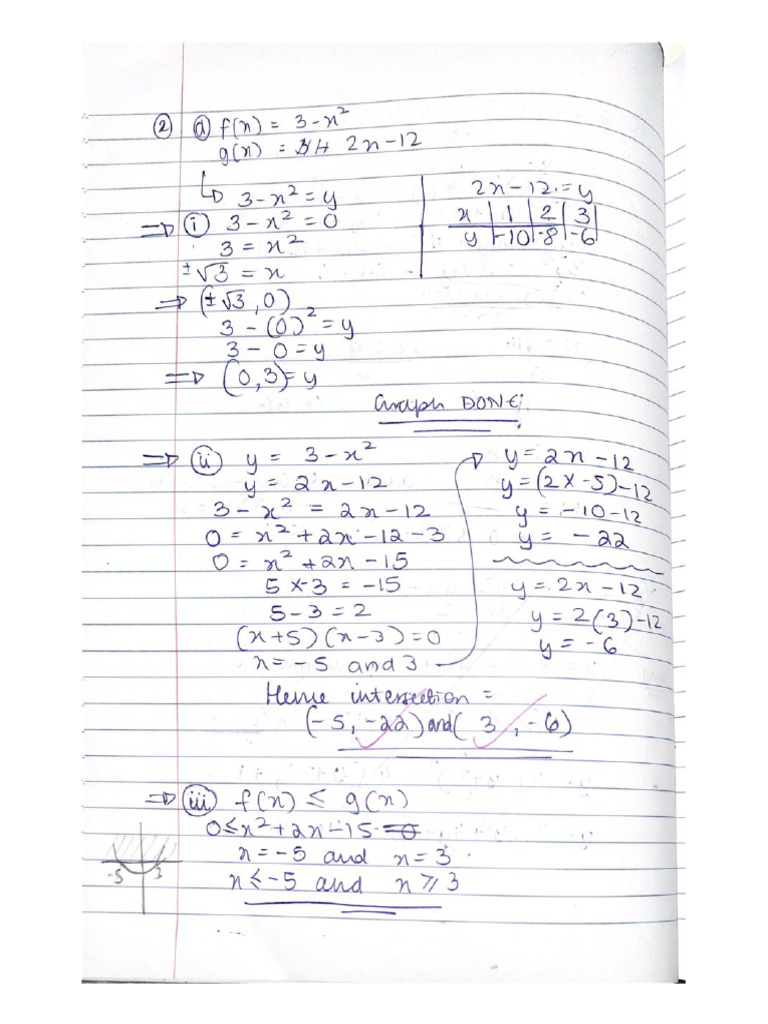 ② ⓐ f(x) = 3 - x²
g(x) = 2x - 12
↳ 3 - x² = y
⇒ ⓘ 3 - x² = 0
3 = x²
±√3 = x
⇒ (±√3, 0)
3 - (0)² = y
3 - 0 = y
⇒ (0,3) = y
2x - 12 = y
x | 1 | 2 | 3 |
y | -10 | -8 | -6
Graph DONE
⇒ (ii) y = 3 - x²
y = 2x - 12
3 - x² = 2x - 12
0 = x² + 2x - 12 - 3
0 = x² + 2x - 15
5 x -3 = -15
5 - 3 = 2
(x+5)(x-3) = 0
x = -5 and 3
y = 2x - 12
y = (2 x -5) - 12
y = -10 - 12
y = -22
y = 2x - 12
y = 2(3) - 12
y = -6
Hence intersection =
(-5, -22) and (3, -6)
⇒ (iii) f(x) ≤ g(x)
0 ≤ x² + 2x - 15 = 0
x = -5 and x = 3
x ≤ -5 and x ≥ 3
-5 3